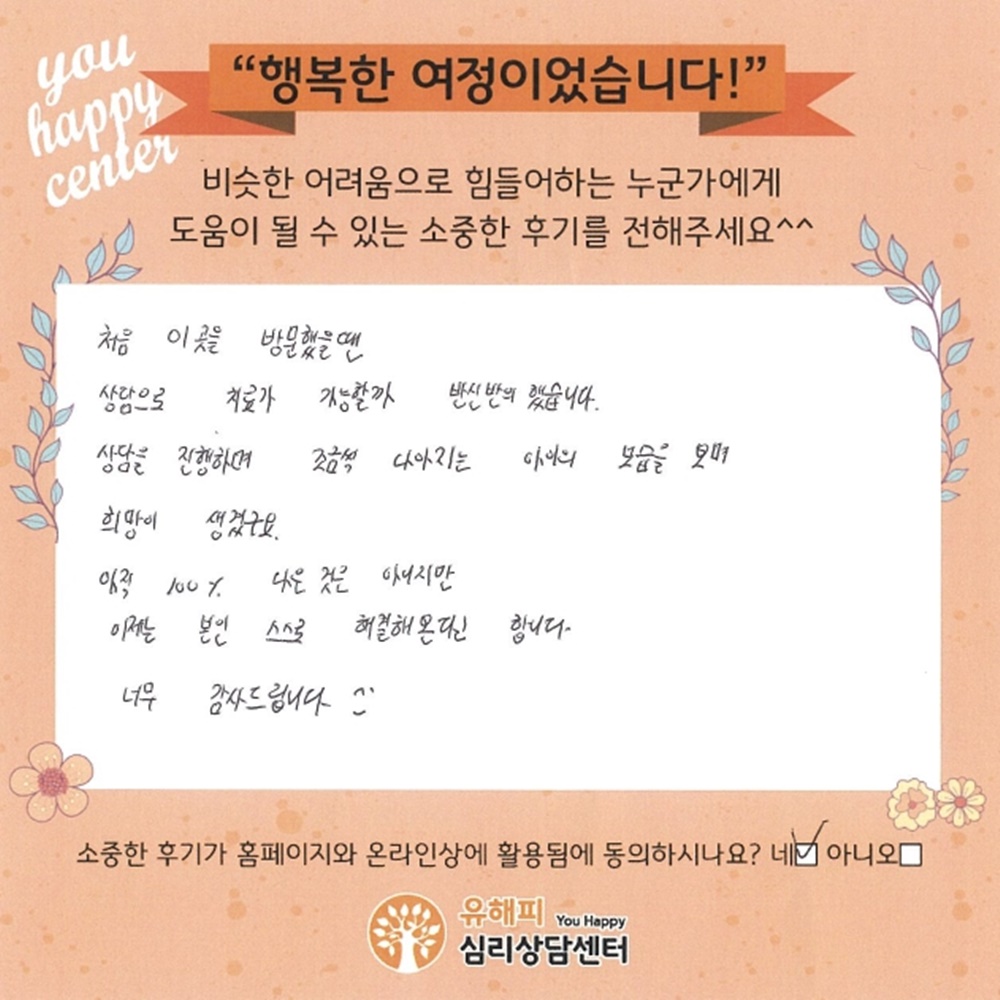 you
happy
center
“행복한 여정이었습니다!”
비슷한 어려움으로 힘들어하는 누군가에게
도움이 될 수 있는 소중한 후기를 전해주세요^^
처음 이 곳을 방문했을땐
상담으로 치료가 가능할까 반신반의 했습니다.
상담을 진행하며 조금씩 나아지는 아이의 모습을 보며
희망이 생겼구요.
아직 100% 나은 것은 아니지만
이제는 본인 스스로 해결해본다고 합니다.
너무 감사드립니다 ^^
소중한 후기가 홈페이지와 온라인상에 활용됨에 동의하시나요? 네☑ 아니오☐
유해피 You Happy
심리상담센터